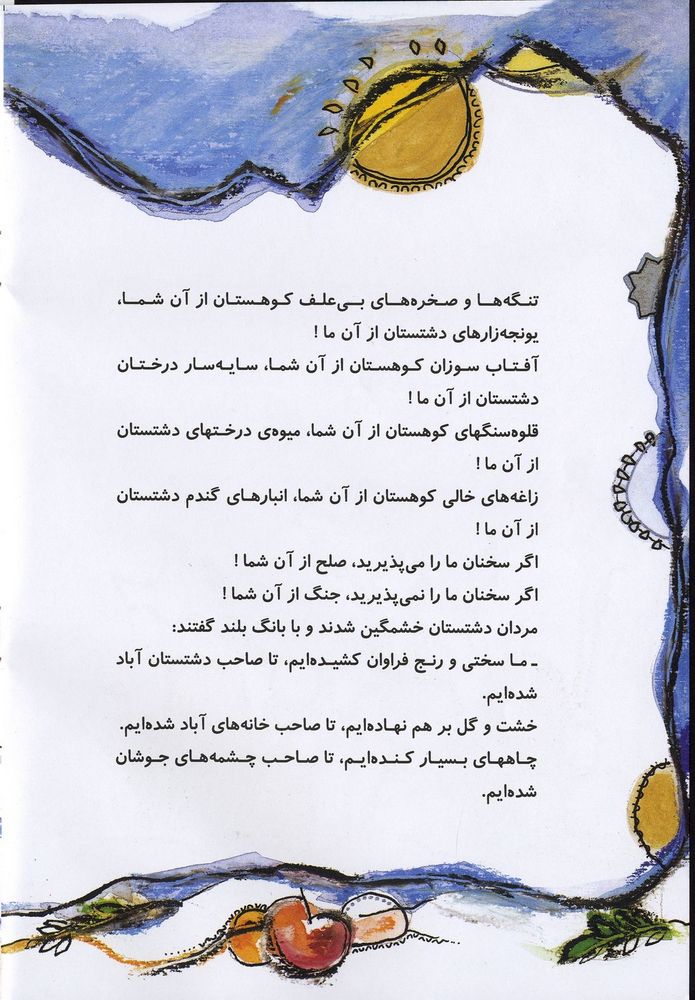 تنگه‌ها و صخره‌های بی‌علف کوهستان از آن شما،
یونجه‌زارهای دشتستان از آن ما !
آفتاب سوزان کوهستان از آن شما، سایه‌سار درختان
دشتستان از آن ما !
قلوه‌سنگهای کوهستان از آن شما، میوه‌ی درختهای دشتستان
از آن ما !
زاغه‌های خالی کوهستان از آن شما، انبارهای گندم دشتستان
از آن ما !
اگر سخنان ما را می‌پذیرید، صلح از آن شما !
اگر سخنان ما را نمی‌پذیرید، جنگ از آن شما !
مردان دشتستان خشمگین شدند و با بانگ بلند گفتند:
ـ ما سختی و رنج فراوان کشیده‌ایم، تا صاحب دشتستان آباد
شده‌ایم.
خشت و گل بر هم نهاده‌ایم، تا صاحب خانه‌های آباد شده‌ایم.
چاههای بسیار کنده‌ایم، تا صاحب چشمه‌های جوشان
شده‌ایم.